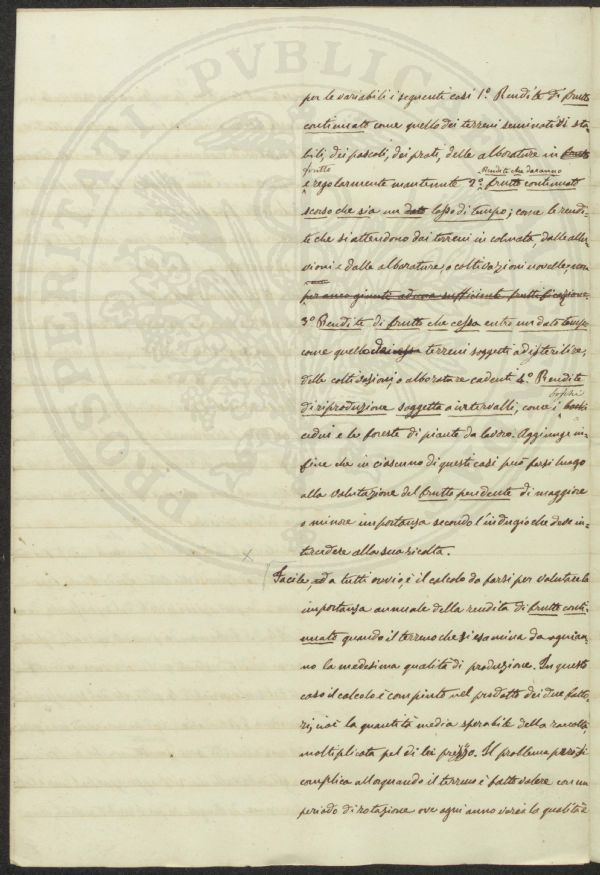 PROSPERITATI PVBLIC
per le variabili i seguenti casi 1.º Rendite di frutto
continuato come quello dei terreni seminati di sta
bili, dei pascoli, dei prati, delle alborature in frutto
frutto
Rendite che daranno
e regolarmente mantenute 2.º frutto continuato
scorso che sia un dato lasso di tempo; come le rendi-
te che si attendono dai terreni in colmata dalle allu-
vioni e dalle alborature, o coltivazioni novelle, non
per anco giunte ad una sufficiente fruttificazione.
3.º Rendite di frutto che cessa entro un dato tempo
come quello terreni soggetti ad isterilire,
delle coltivazioni o alborature cadenti 4.º Rendite
boschi
di riproduzione soggetta a intervalli, come i boschi
cedui e le foreste di piante da lavoro. Aggiunge in-
fine che in ciascuno di questi casi può farsi luogo
alla valutazione del frutto pendente di maggiore
o minore importanza secondo l'indugio che deve in-
tercedere alla sua ricolta.
Facile, ed a tutti ovvio, è il calcolo da farsi per valutare la
importanza annuale della rendita di frutto conti-
nuato quando il terreno che si esamina da ogni an-
no la medesima qualità di produzione. In questo
caso il calcolo è compiuto nel prodotto dei due fatto-
ri, cioè la quantità media sperabile della raccolta,
moltiplicata pel di lei prezzo. Il problema però si
complica allorquando il terreno è fatto valere con un
periodo di rotazione ove ogni anno varia la qualità e